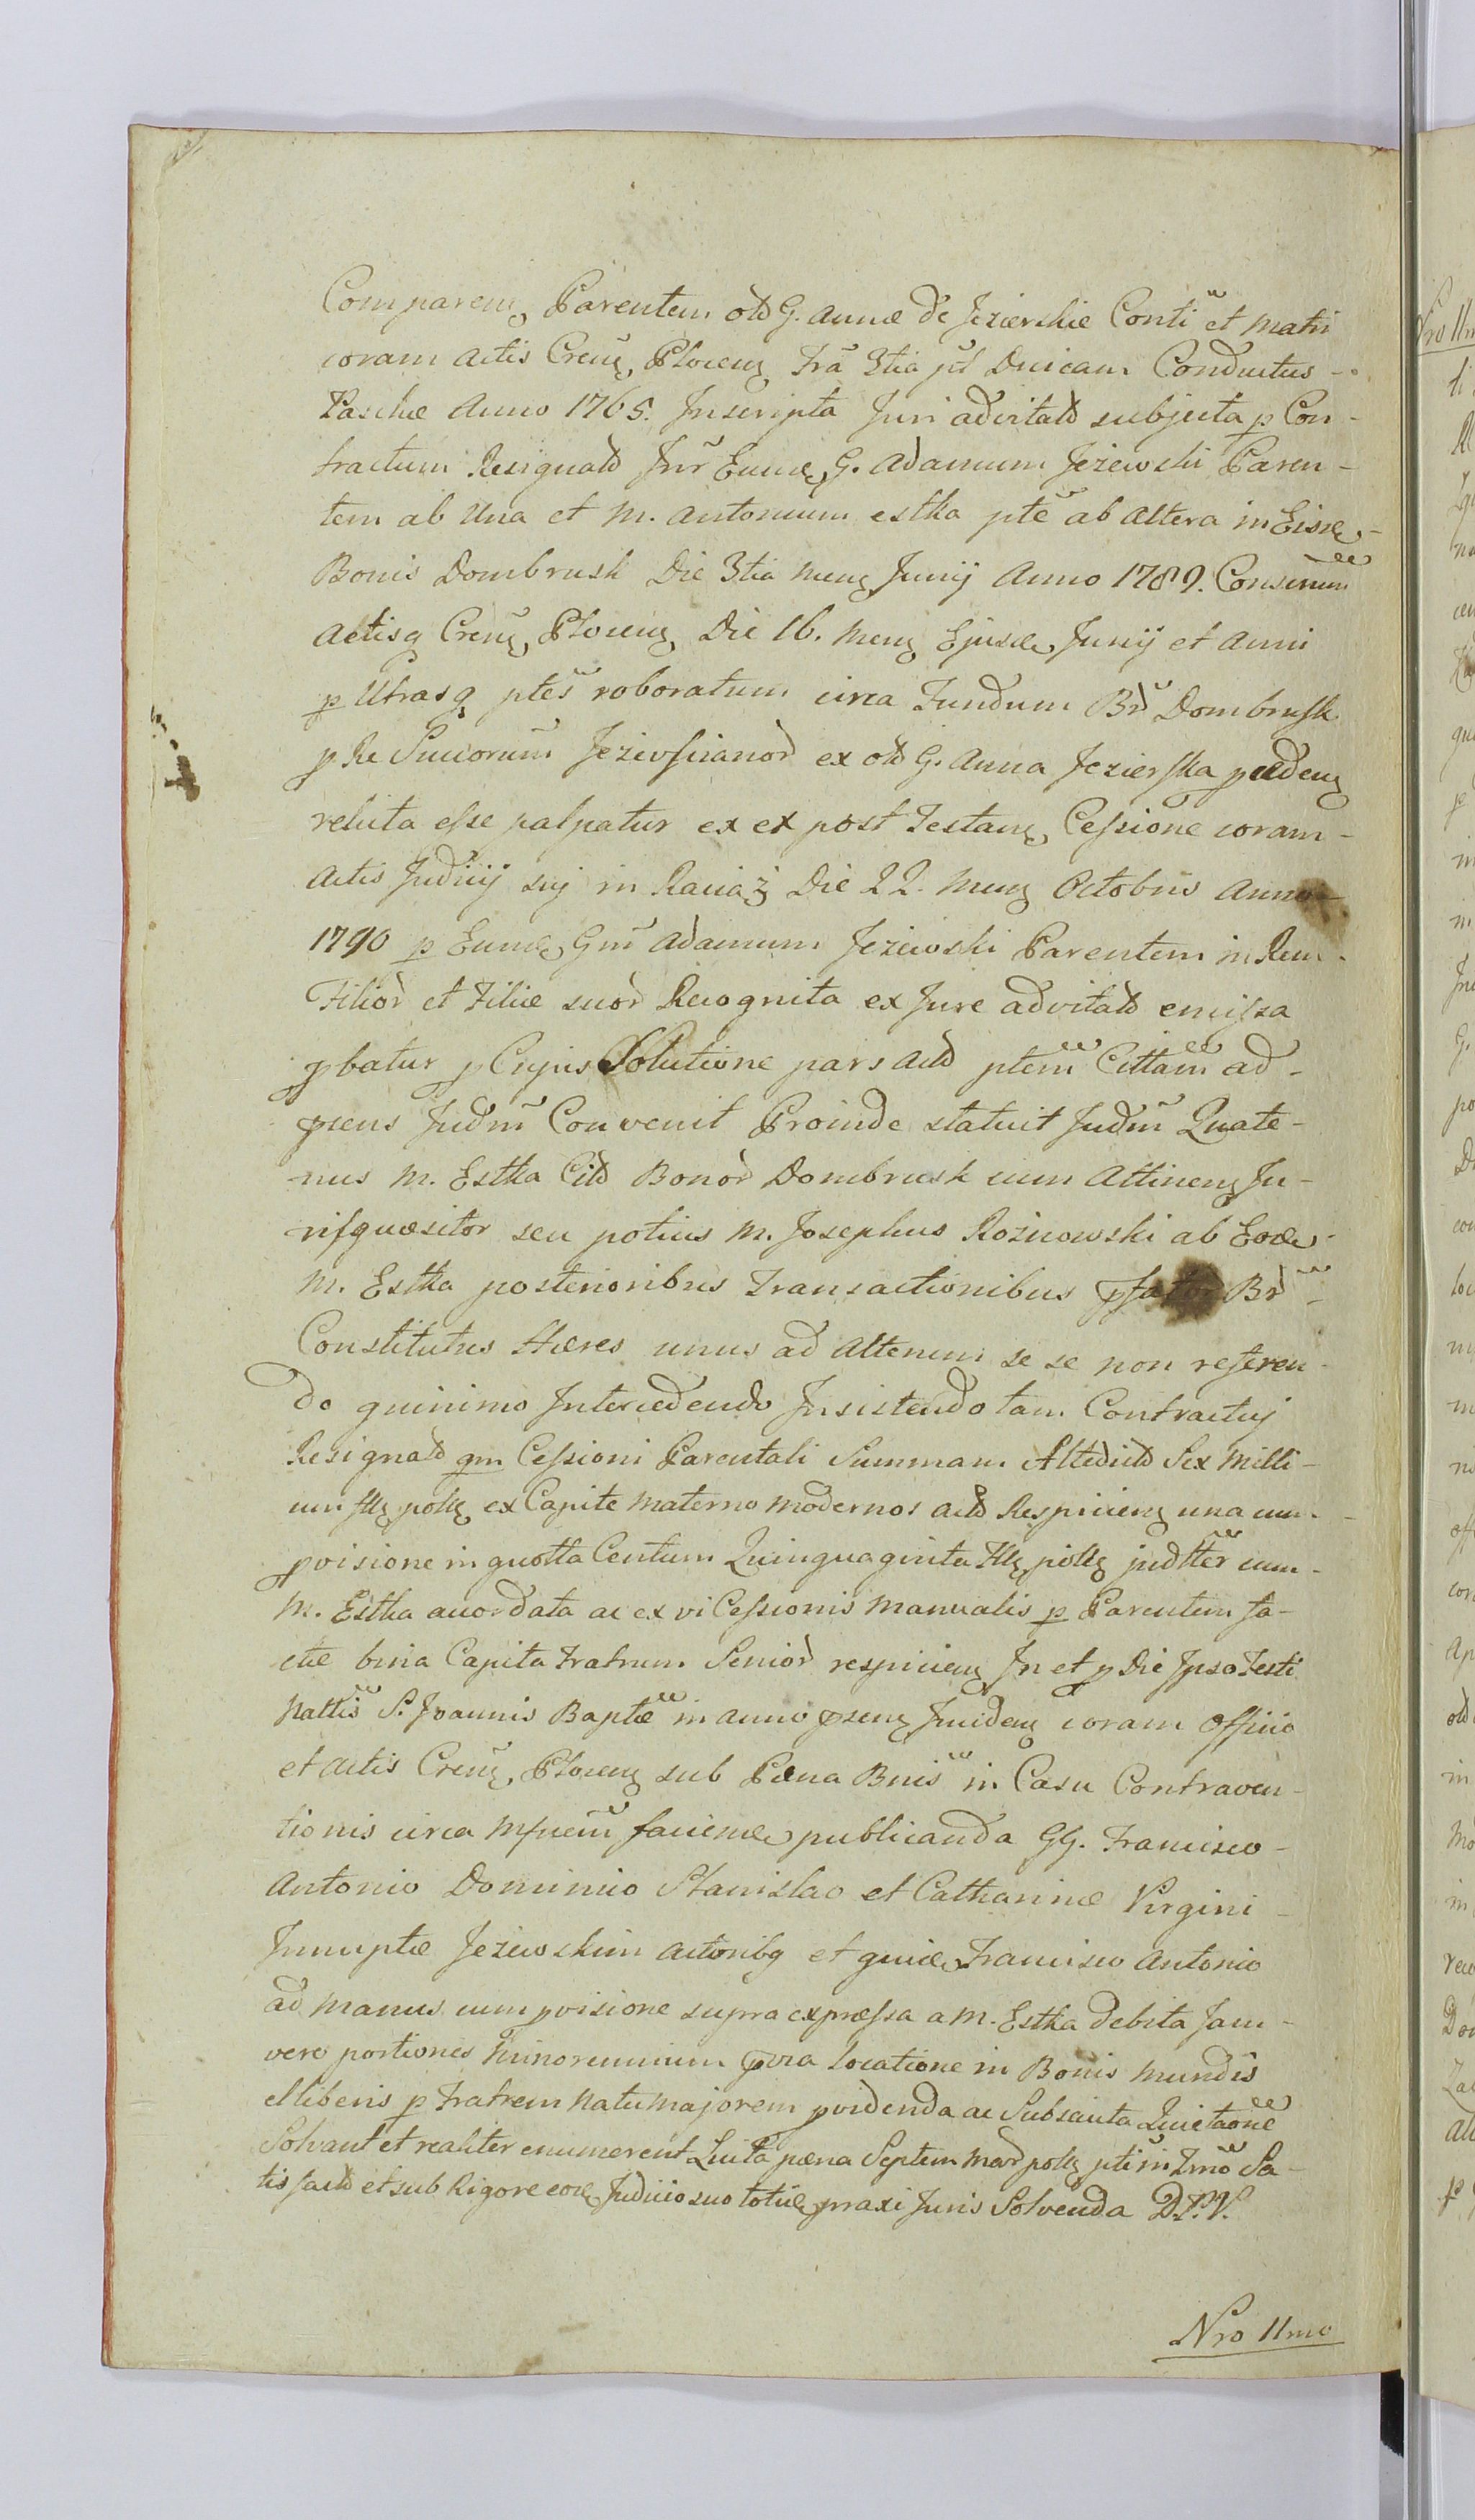 Compareng Parentem old G. Annæ de Jezierskie Conti et Matri
coram Actis Creng Ploceng Fra 3tia pt Dnicam Conductus -
Paschæ Anno 1765. Inscripta Juri advitald subjecta p Con-
tractum Resignald Inr Eund G. Adamum Jeżewski Paren-
tem ab Una et M. Antonium Estka pte ab Altera in Eisd
Bonis Dombrusk Die 3tia Meng Junij Anno 1789. Conscrium
Actisq Creng Ploceng Die 16. Meng Ejusd Junij et Anni
p Utrasq ptes roboratum circa Fundum Br Dombrusk
p Re Succorum Jeziewscianor ex old G. Anna Jezierska pcedeng
relicta esse palpatur ex et post Testang Cessione coram -
Actis Judicij suj in Raciąż Die 22. Meng Octobris Anno
1790 p Eund Gm Adamum Jeżewski Parentem in Rem -
Filior et Filiæ suor Recognita ex Jure advitald emissa
pbatur p Cujus Solutione pars Actd ptem Cittam ad -
prens Judm Convenit Proinde statuit Judm Quate-
nus M. Estka Citd Bonor Dombrusk cum Attineng Ju-
risquæsitor seu potius M. Josephus Rożnowski ab Eod
M. Estka posterioribus Transactionibus Br
Constitutus Hæres unus ad Alterum se se non referen-
do quinimo Intercedendo Insistendo tam Contractuj
Resignald qm Cessioni Parentali Summam Altedictd Sex Milli-
um flg polg ex Capite Materno Modernos Actd Respicieng una cum -
pvisione in quotta Centum Quinquaginta Flg polg judtter cum -
M. Estka accordata ac ex vi Cessionis Manualis p Parentem fa-
ctæ bina Capita Fratrum Senior respicieng In et p Die Ipso Festi
Nattis S. Joannis Baptæ in anno prseng Incideng coram Officio
et Actis Creng Ploceng sub Pæna Bnis in Casu Contraven-
tionis circa faciend publicanda GG. Francisco -
Antonio Dominico Stanislao et Catharinæ Virgini -
Innuptæ Jeżewskim Actoribq et quid Francisco Antonio
ad Manus cum pvisione supra expressa a M. Estka debita Jam -
vero portiones Minorennium pvia Locatione in Bonis Mundis
et liberis p Fratrem Natu majorem pvidenda ac Subsecuta Quietaone
Solvant et realiter enumerent Luita pæna Septem Mar polg pti in Imo Sa-
tisfactd et sub Rigore eod Judicio suo totius praxi Juris Solvenda D.P.V.
Nro 11mo